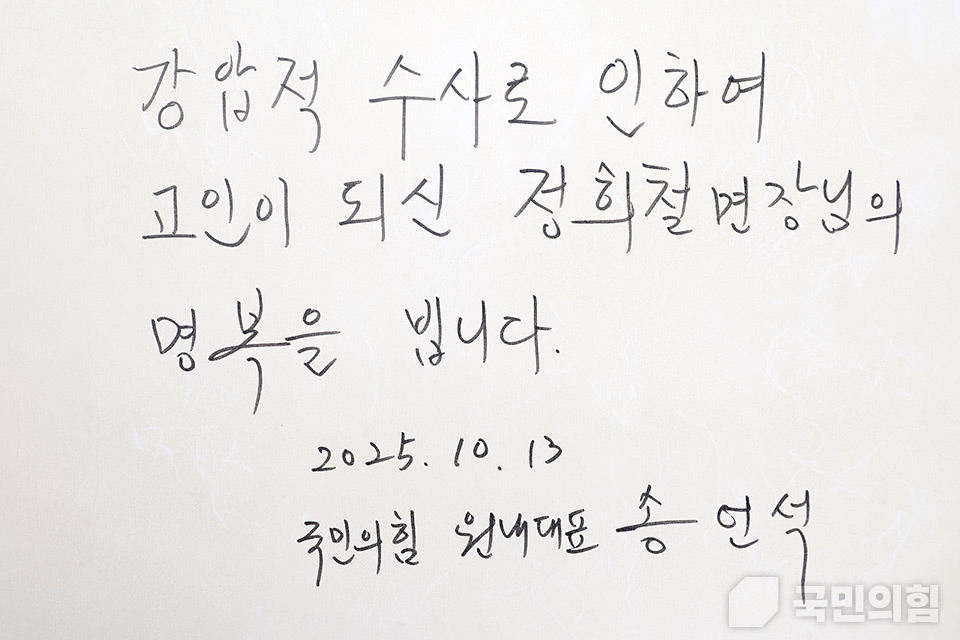 강압적 수사로 인하여
고인이 되신 정희철면장님의
명복을 빕니다.
2025. 10. 13
국민의힘 원내대표 송언석
국민의힘